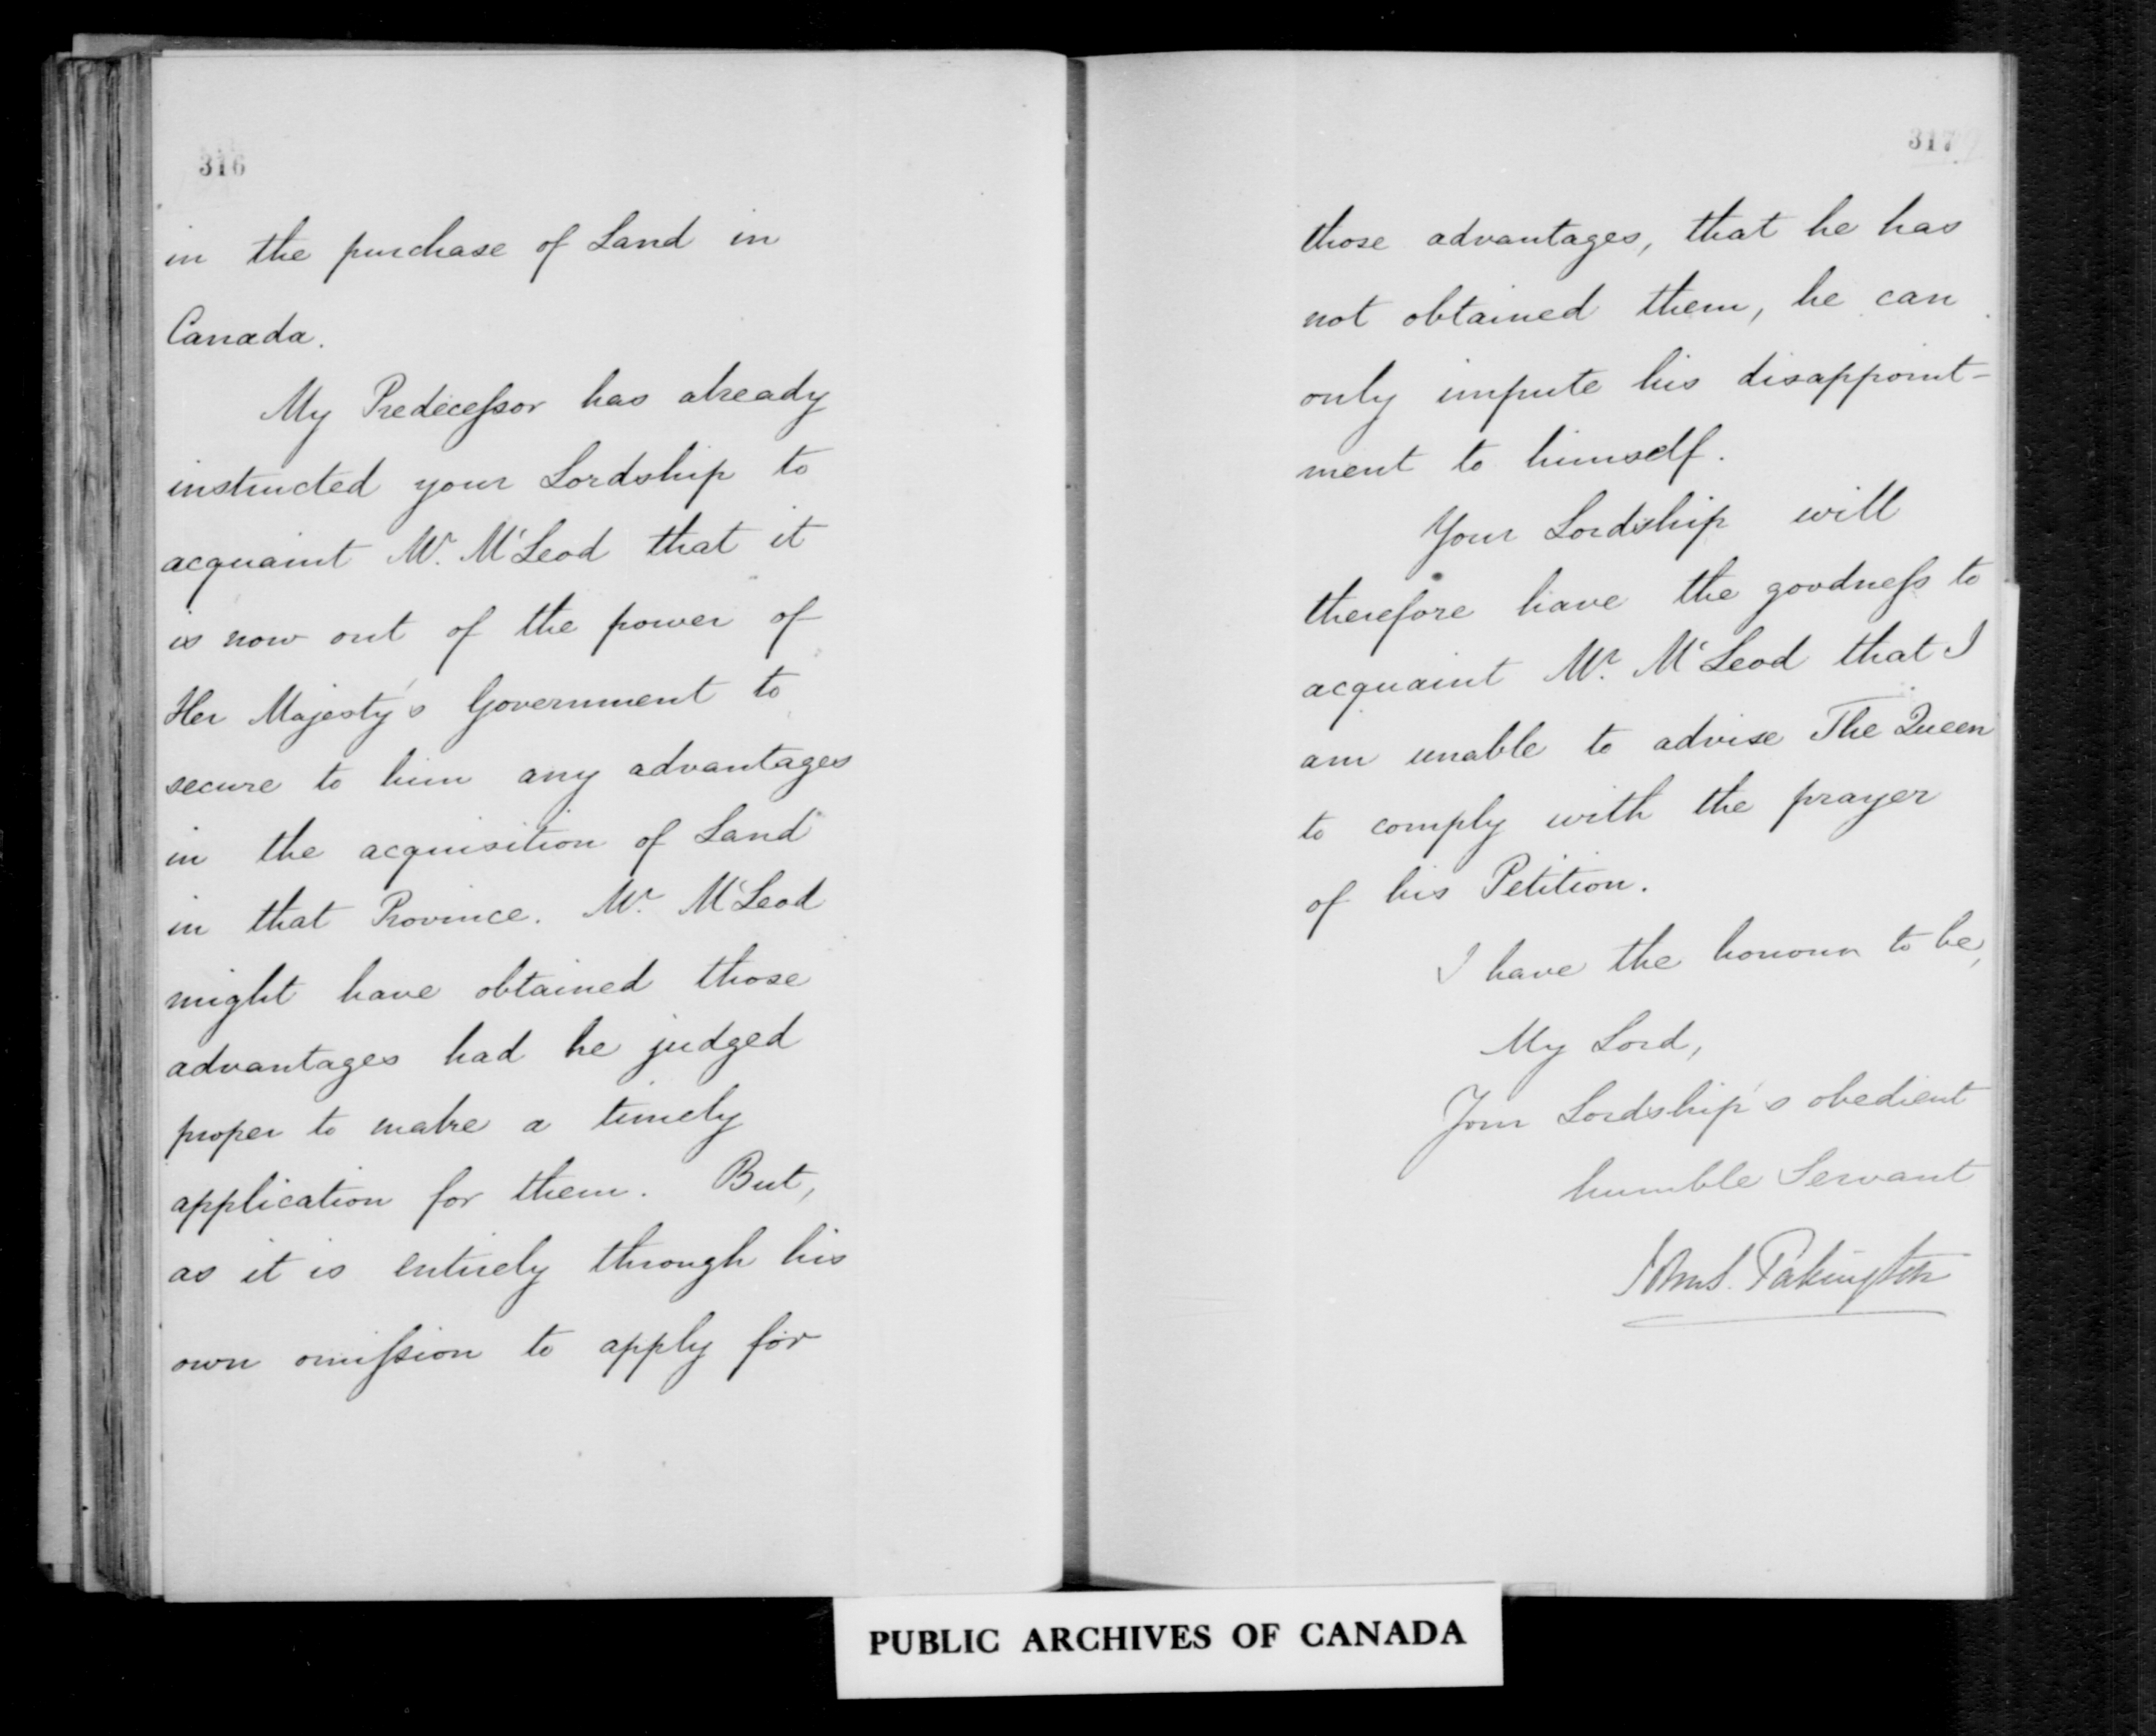 316
in the purchase of Land in
Canada.
My Predeceſsor has already
instructed your Lordship to
acquaint Mr. McLeod that it
is now out of the power of
Her Majesty's Government to
secure to him any advantages
in the acquisition of Land
in that Province. Mr. McLeod
might have obtained those
advantages had he judged
proper to make a timely
application for them. But,
as it is entirely through his
own omiſsion to apply for
317
those advantages, that he has
not obtained them, he can
only impute his disappoint-
ment to himself.
Your Lordship will
therefore have the goodneſs to
acquaint Mr. McLeod that I
am unable to advise The Queen
to comply with the prayer
of his Petition.
I have the honour to be,
My Lord,
Your Lordship's obedient
humble Servant
John S. Pakington
PUBLIC ARCHIVES OF CANADA